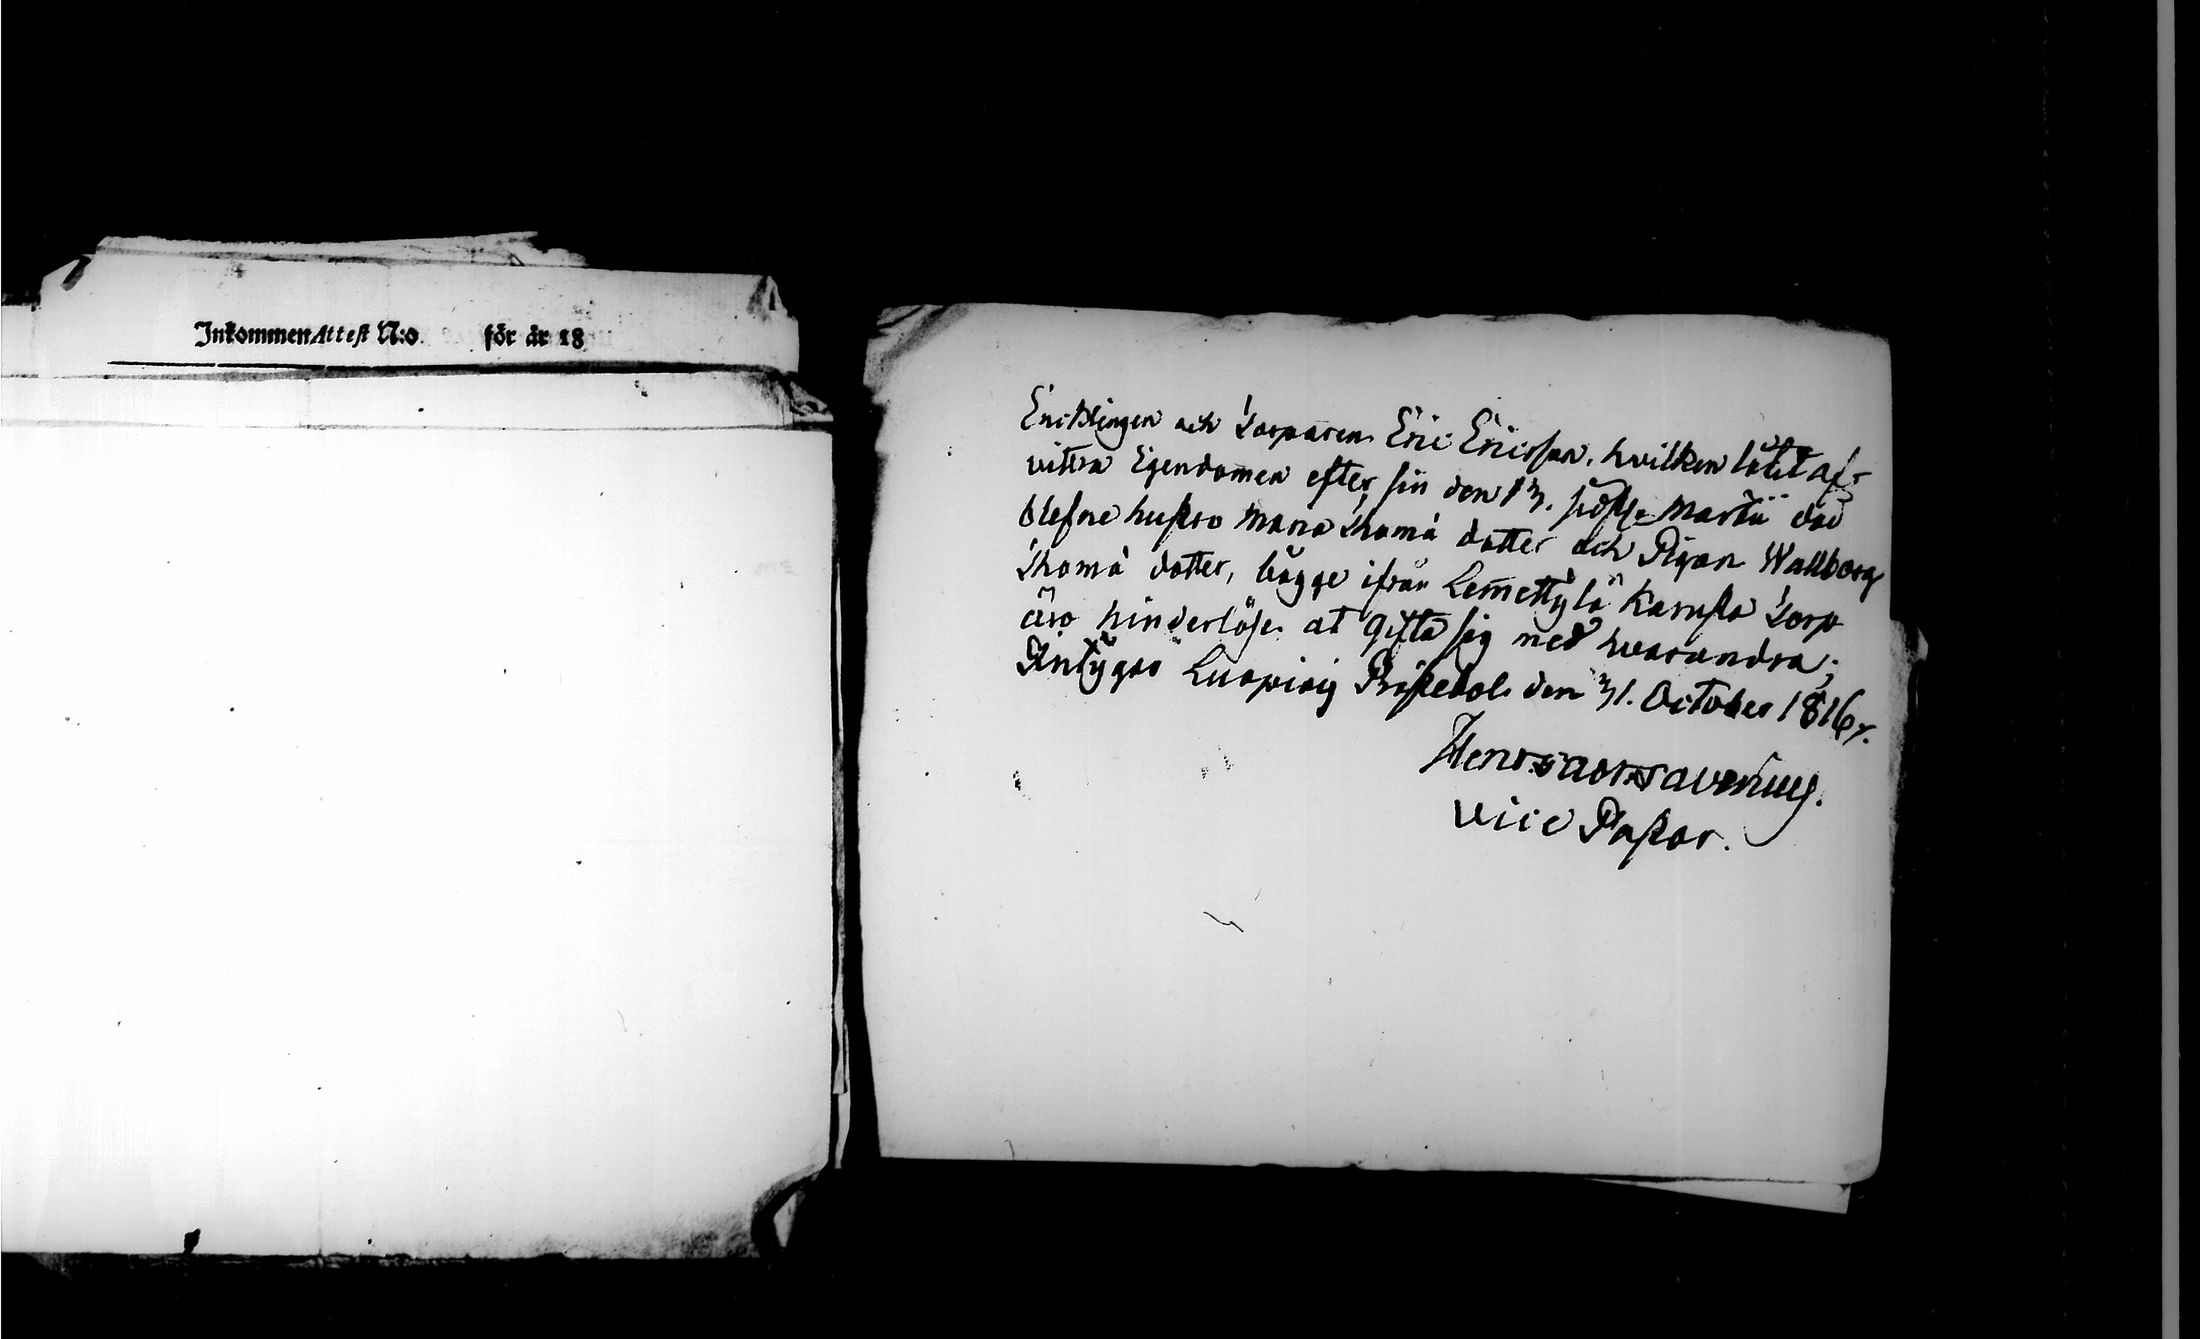 Inkommen Attest N:o för år 18
Enklingen och Torparen Eric Ericsson, hvilken låtit af-
vittra Egendomen efter sin den 13. sidstl. Martii död
blefne hustro Maria Thomä dotter och Pigan Wallborg
Thomä dotter, bägge ifrån Lemettylä Karusta Torp
äro hinderlöse at gifta sig med hvarandra;
Intygar Luopioig Prästebol den 31. October 1816.
vice Pastor.